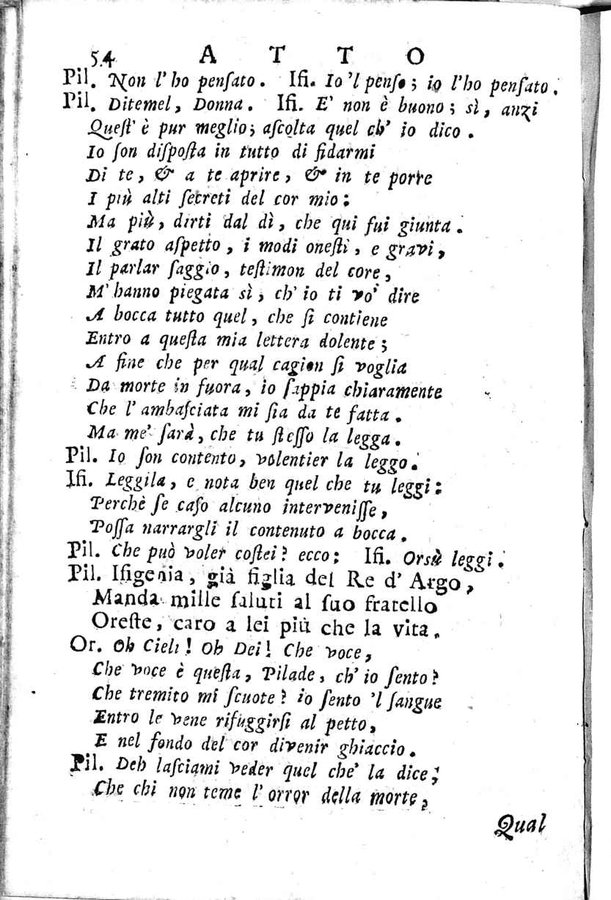 54 A T T O
Pil. Non l'ho penſato. Iſi. Io 'l penſo; io l'ho penſato.
Pil. Ditemel, Donna. Iſi. E' non è buono; sì, anzi
Queſt' è pur meglio; aſcolta quel ch' io dico.
Io ſon diſpoſta in tutto di fidarmi
Di te, & a te aprire, & in te porre
I più alti ſecreti del cor mio:
Ma più, dirti dal dì, che qui fui giunta.
Il grato aſpetto, i modi oneſti, e gravi,
Il parlar ſaggio, teſtimon del core,
M' hanno piegata sì, ch' io ti vo' dire
A bocca tutto quel, che ſi contiene
Entro a queſta mia lettera dolente;
A fine che per qual cagion ſi voglia
Da morte in fuora, io ſappia chiaramente
Che l' ambaſciata mi ſia da te fatta.
Ma me' ſarà, che tu ſteſſo la legga.
Pil. Io ſon contento, volentier la leggo.
Iſi. Leggila, e nota ben quel che tu leggi:
Perchè ſe caſo alcuno interveniſſe,
Poſſa narrargli il contenuto a bocca.
Pil. Che può voler coſtei? ecco: Iſi. Orsù leggi.
Pil. Iſigenia, già figlia del Re d' Argo,
Manda mille ſaluti al ſuo fratello
Oreſte, caro a lei più che la vita.
Or. Oh Cieli! Oh Dei! Che voce,
Che voce è queſta, Pilade, ch' io ſento?
Che tremito mi ſcuote? io ſento 'l ſangue
Entro le vene rifuggirſi al petto,
E nel fondo del cor divenir ghiaccio.
Pil. Deh laſciami veder quel che' la dice;
Che chi non teme l' orror della morte,
Qual